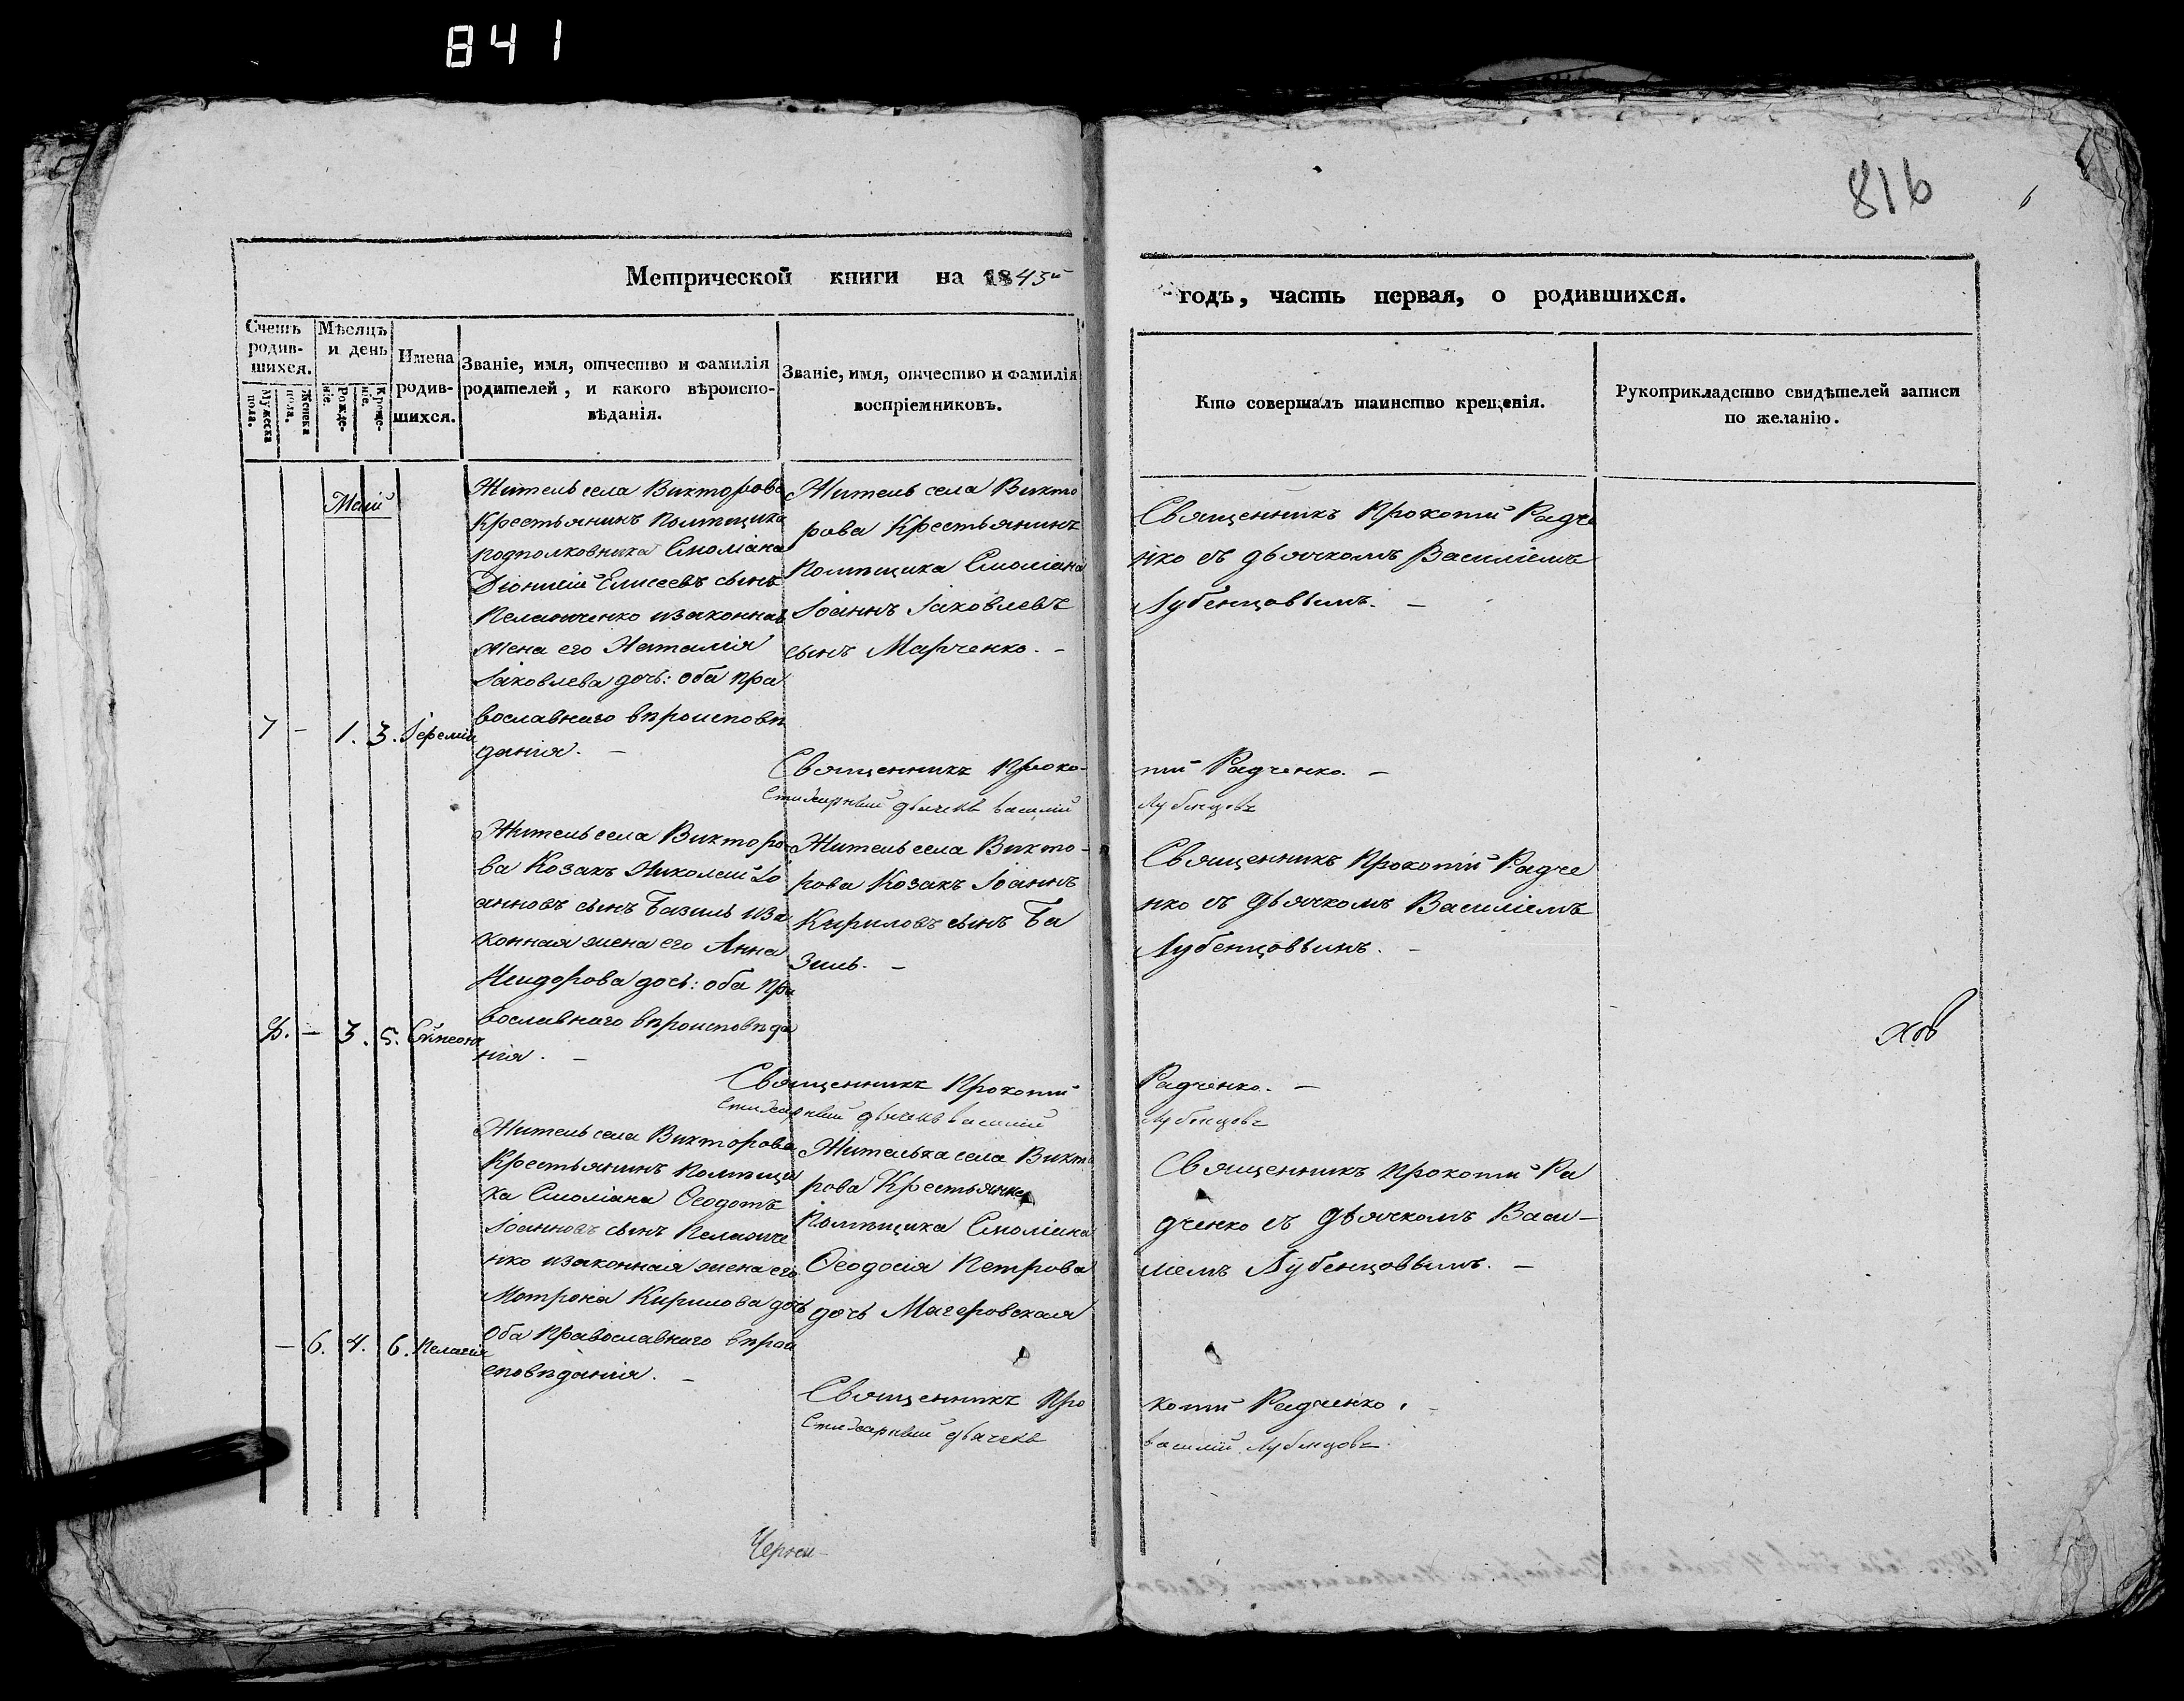 841
816
Метрической книги на 1843й
годъ, часть первая, о родившихся.
Счетъ родившихся.
Мужеска пола.
Женска пола.
Мѣсяцъ и день
Рожденіе.
Крещеніе.
Имена родившихся.
Званіе, имя, отчество и фамилія
родителей, и какого вѣроиспо-
вѣданія.
Званіе, имя, отчество и фамилія
воспріемниковъ.
Кто совершалъ таинство крещенія.
Рукоприкладство свидѣтелей записи
по желанію.
Маій
7 - 1. 3. Іеремія
Житель села Викторова
Крестьянинъ Помѣщика
подполковника Смоліяна
Діонисій Елисеевъ сынъ
изаконная
жена его Наталія
Іаковлева дочь: оба пра
вославнаго вѣроисповѣ
данія. -
Житель села Викто
рова Крестьянинъ
Помѣщика Смоліяна
Іоаннъ Іаковлевъ
сынъ Марченко. -
Священникъ Прокопій Радче
нко съ дьячкомъ Василіемъ
Лубенцовымъ. -
Священникъ Проко-
пій Радченко. -
Стихарный дьячекъ василий
Лубенцовъ
8. - 3. 5. Симеонъ
Житель села Викторо
ва Козакъ Николай Іо
анновъ сынъ Базиль иза
конная жена его Анна
Исидорова дочь: оба пра
вославнаго вѣроисповѣда
нія. -
Житель села Викто-
рова Козакъ Іоаннъ
Кириловъ сынъ Ба
зиль. -
Священникъ Прокопій Радче
нко съ дьячкомъ Василіемъ
Лубенцовымъ. -
Священникъ Прокопій
Радченко. -
Стихарный дьячекъ василий
Лубенцовъ
- 6. 4. 6. Пелагія
Житель села Викторова
Крестьянинъ Помѣщи
ка Смоліяна Ѳеодотъ
Іоанновъ сынъ
изаконная жена его
Мотрона Кирилова дочь
Оба Православнаго вѣрои
сповѣданія. -
Жителька села Викто
рова Крестьянка
Помѣщика Смоліяна
Ѳеодосія Петрова
дочь Магеровская
Священникъ Прокопій Ра
дченко съ дьячкомъ Васи-
ліемъ Лубенцовымъ. -
Священникъ Про
копій Радченко.
Стихарный дьячекъ
василий Лубенцовъ.